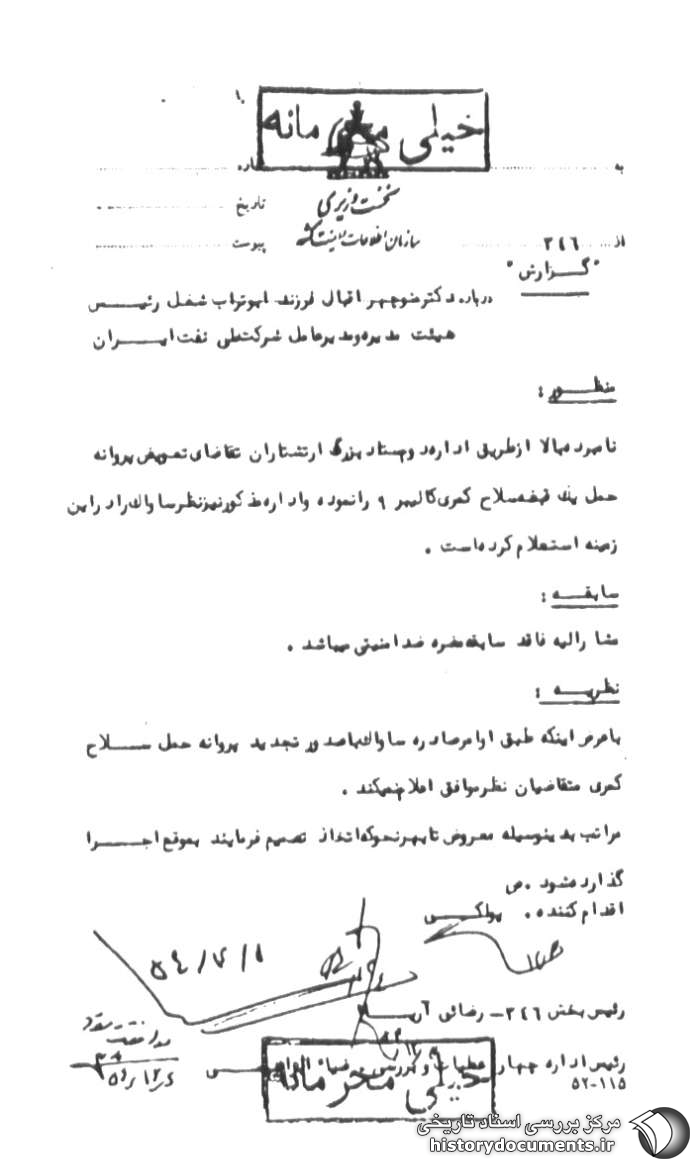 خیلی محرمانه
به
شماره
نخست وزیری
تاریخ
سازمان اطلاعات و امنیت کشور
از ۳۴۶
پیوست
"گـزارش"
درباره دکتر منوچهر اقبال فرزند ابوتراب شغل رئیـــس
هیئت مدیره و مدیرعامل شرکت ملی نفت ایــران
منظـــور :
نامبرده بالا از طریق اداره دوم ستاد بزرگ ارتشتاران تقاضای تعویض پروانه
حمل یک قبضه سلاح کمری کالیبر ۹ را نموده و اداره مذکور نیز نظر ساواک را در این
زمینه استعلام کرده است .
سابقـــه :
مشارالیه فاقد سابقه مضره ضد امنیتی میباشد .
نظریـــه :
با عرض اینکه طبق اوامر صادره ساواک با صدور تجدید پروانه حمل ســـلاح
کمری متقاضیان نظر موافق اعلام نمیکند .
مراتب بدینوسیله معروض تا بهر نحو که اتخاذ تصمیم فرمایند بموقع اجـــرا
گذارده شود . ص
اقدام کننده .
رئیس بخش ۳۴۶ – رضائی
رئیس اداره چهارم عملیات و بررسی
خیلی محرمانه
۵۲-۱۱۵
مرکز بررسی اسناد تاریخی
historydocuments.ir